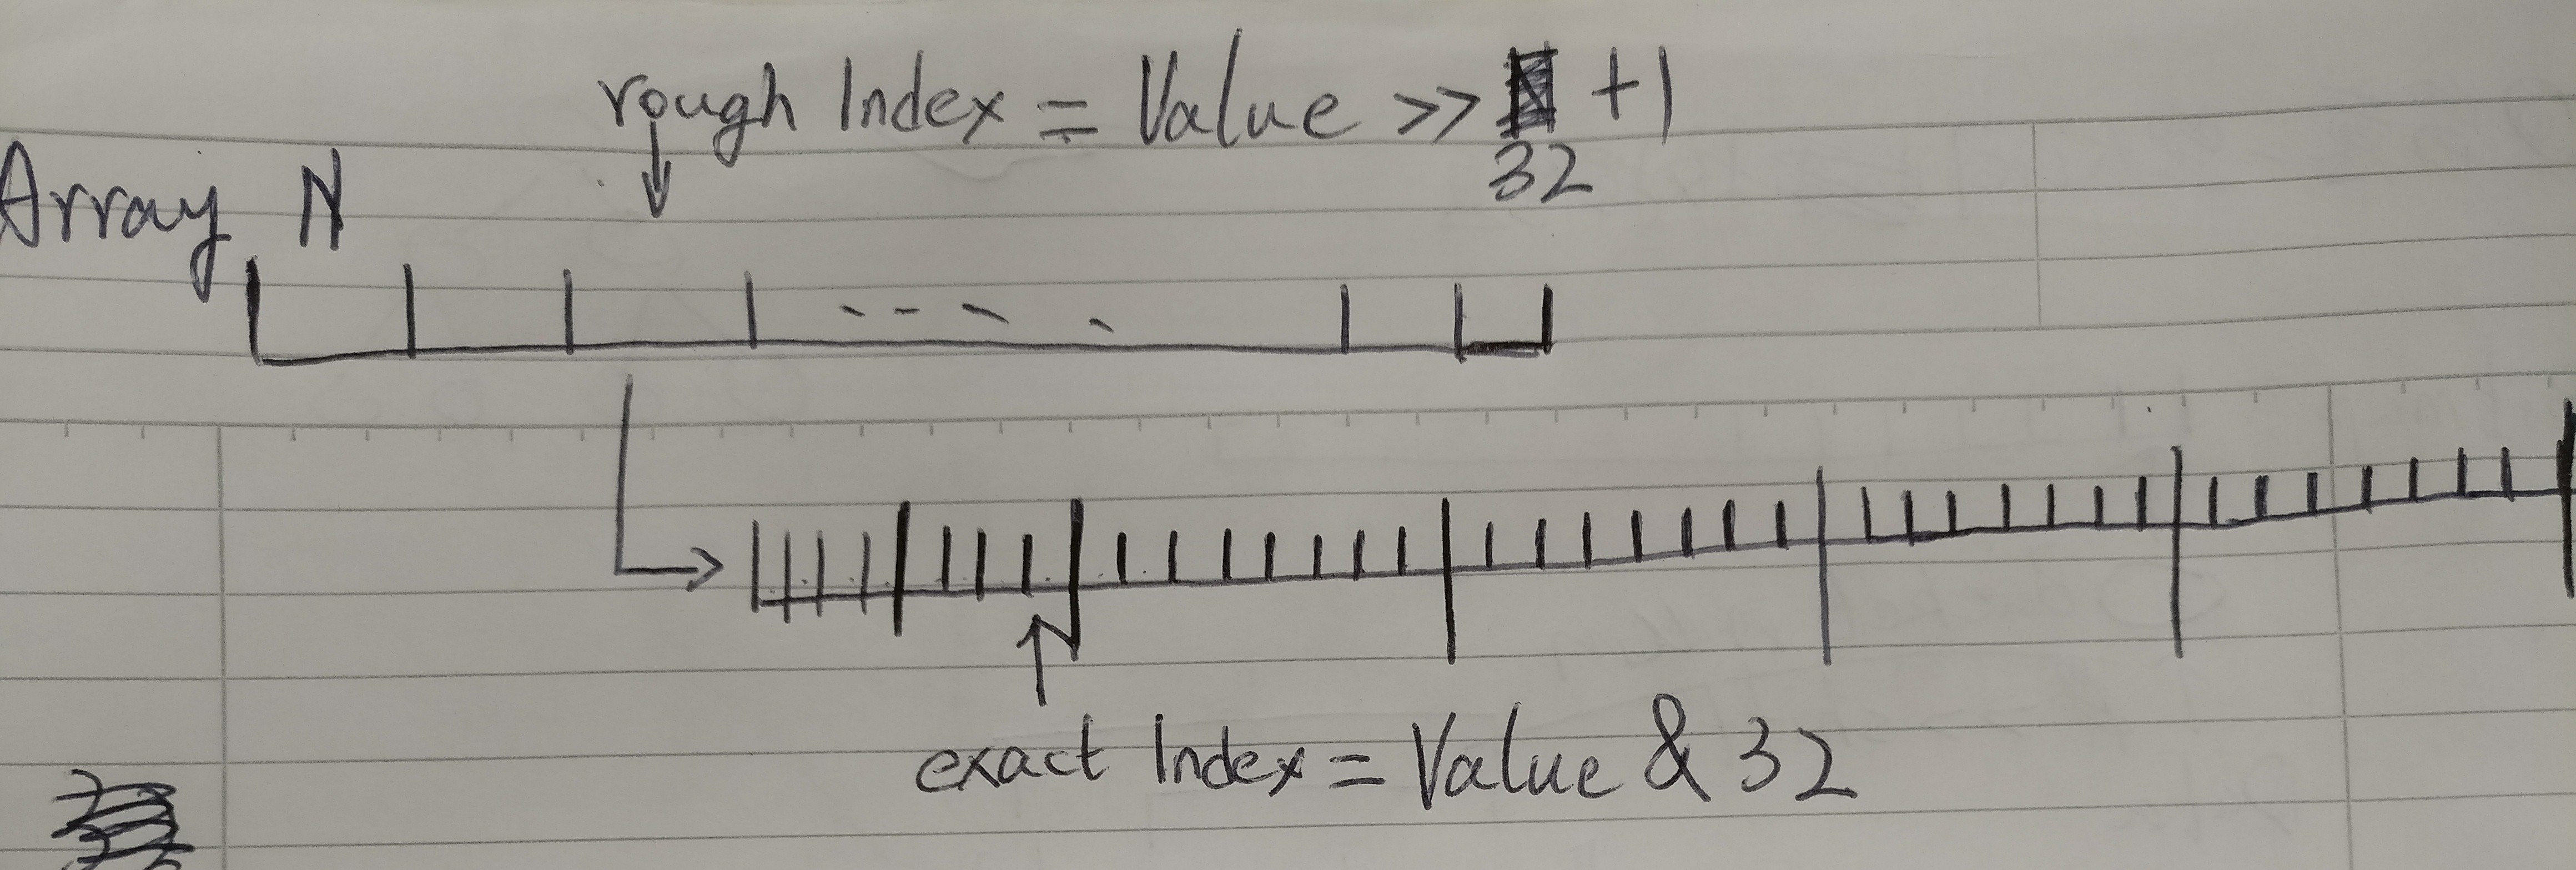 rough Index = Value >> +1
32
Array N
exact Index = Value & 32